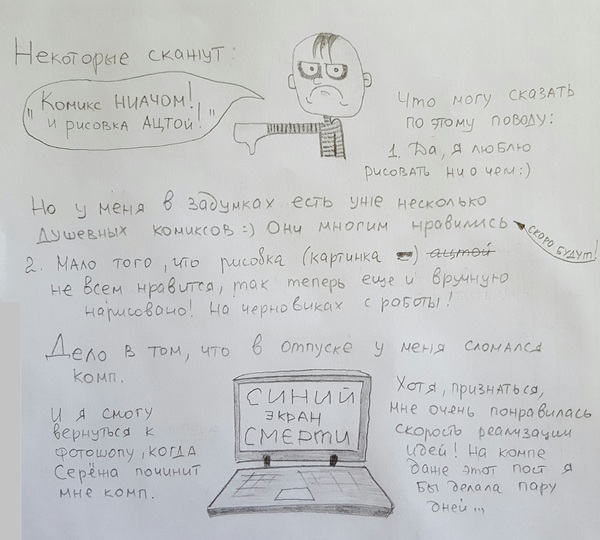 Некоторые скажут:
"Комикс НИАЧОМ!,
и рисовка АЦТОЙ!"
Что могу сказать
по этому поводу:
1. Да, я люблю
рисовать ни о чем:)
Но у меня в задумках есть уже несколько
душевных комиксов=) Они многим нравились
СКОРО БУДУТ!
2. Мало того, что рисовка (картинка) ацтой
не всем нравится, так теперь еще и вручную
нарисовано! На черновиках с работы!
Дело в том, что в отпуске у меня сломался
комп.
СИНИЙ
ЭКРАН
СМЕРТИ
И я смогу
вернуться к
фотошопу, когда
Серёна починит
мне комп.
Хотя, признаться,
мне очень понравилась
скорость реализации
идей! На компе
даже этот пост я
бы делала пару
дней...